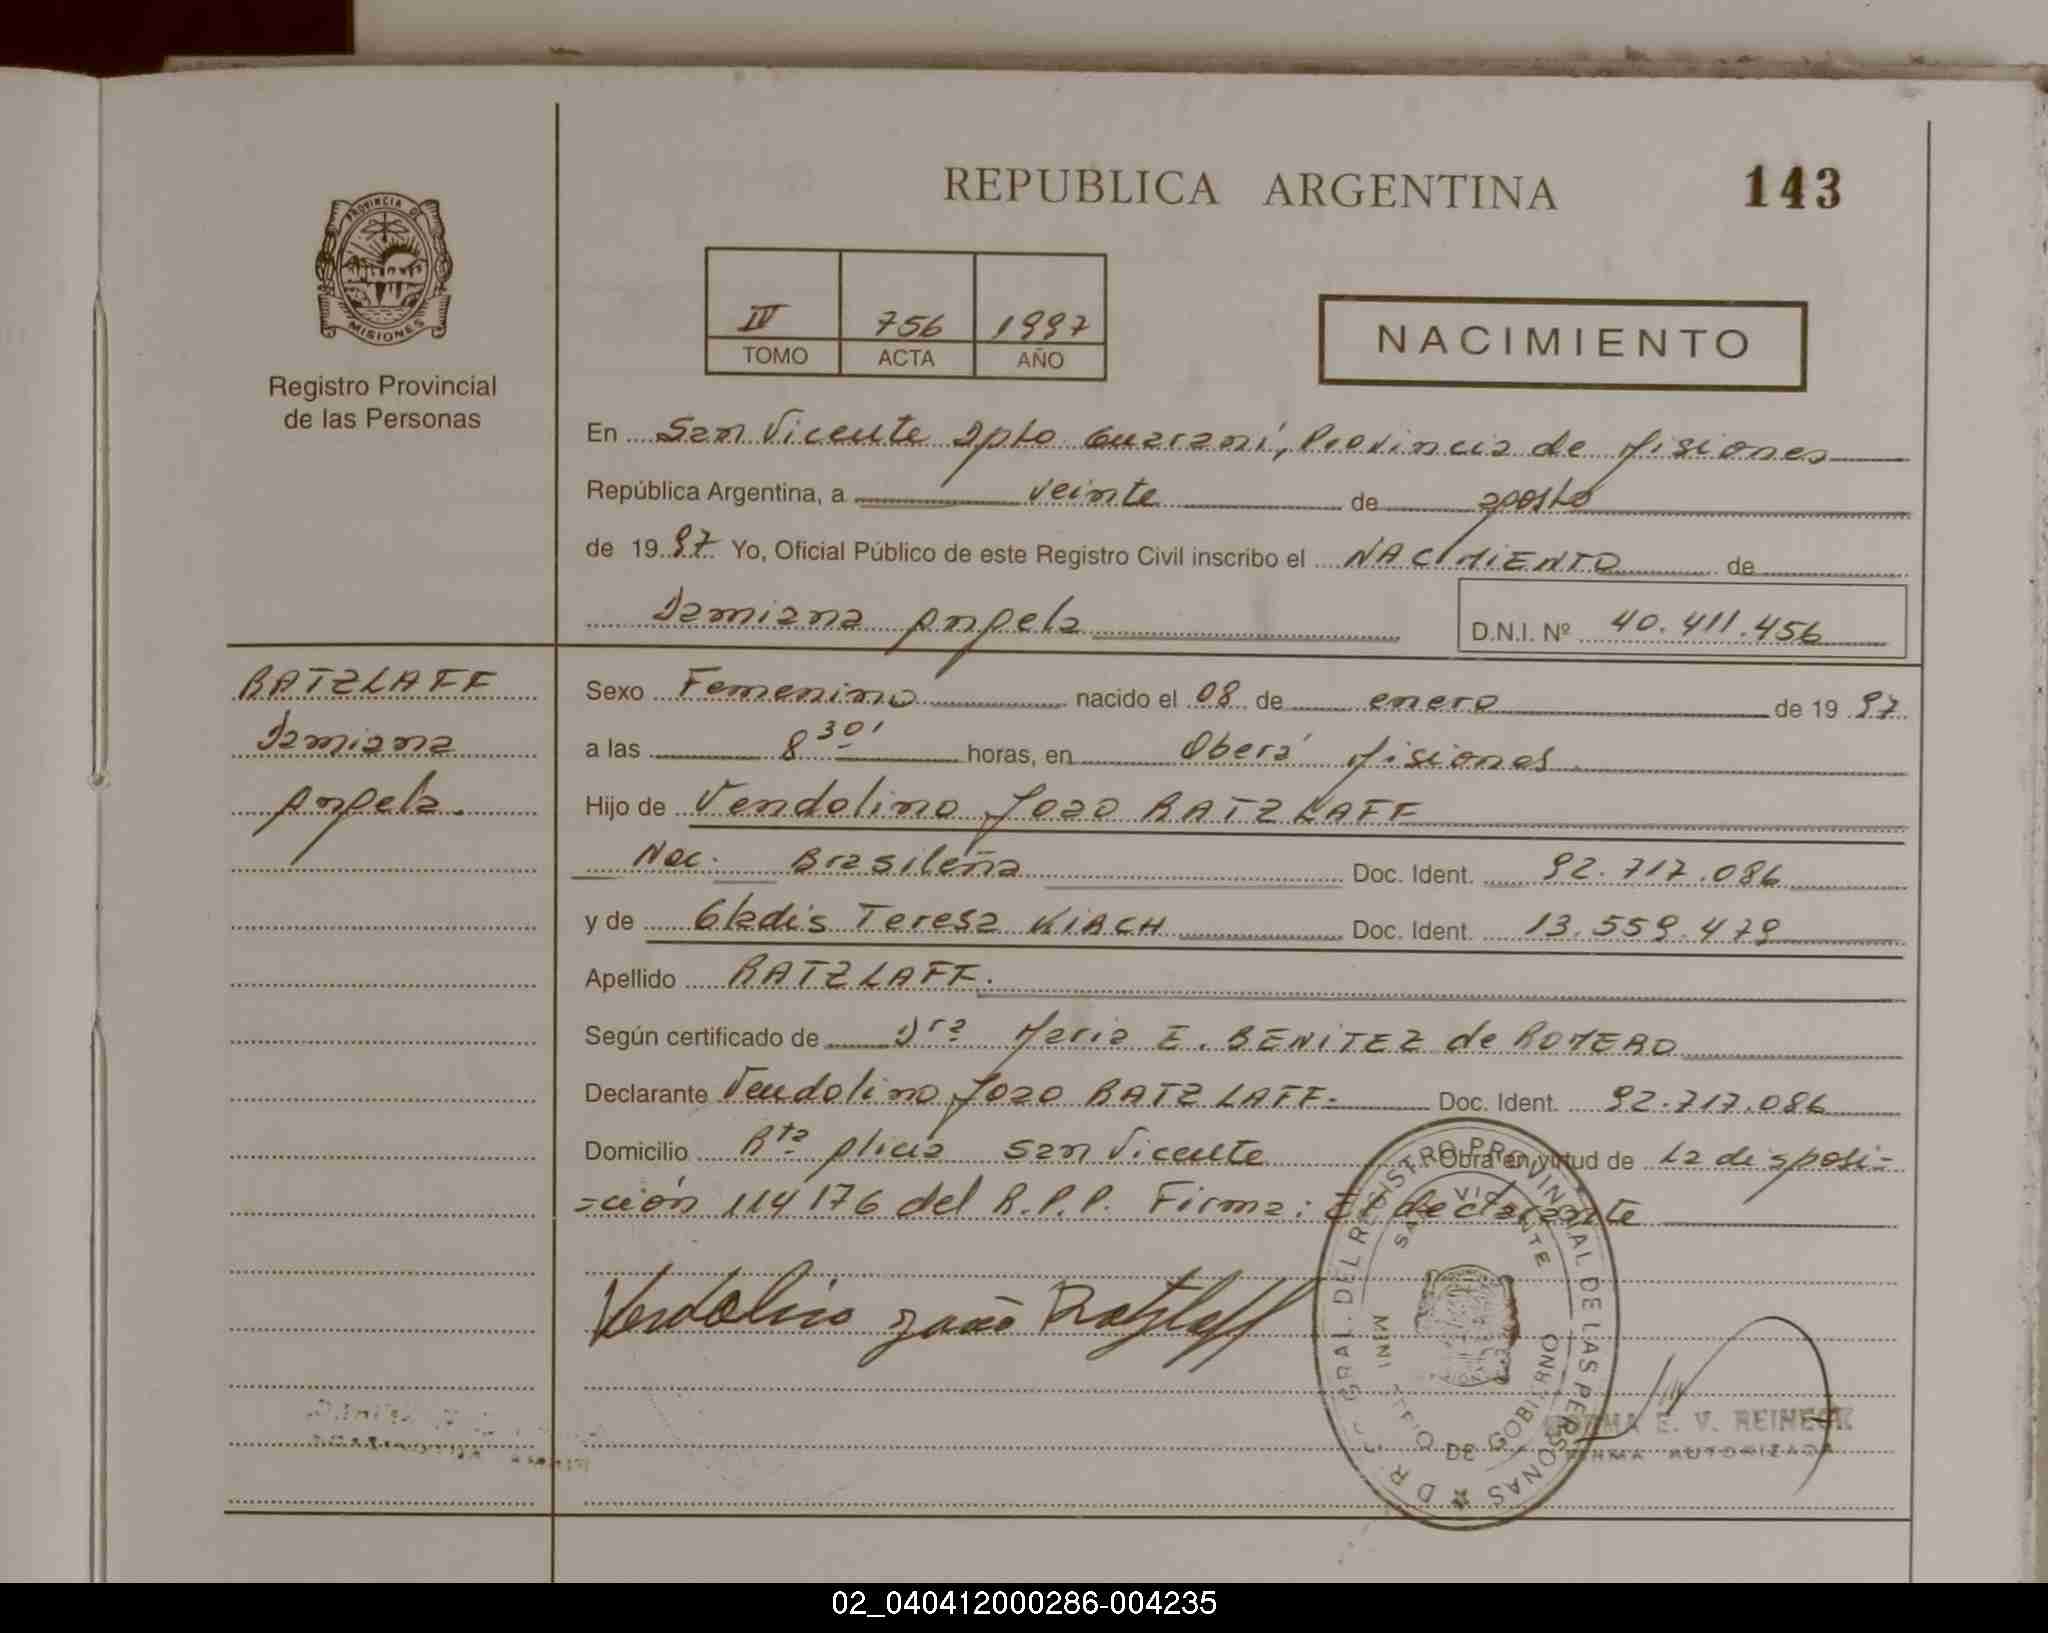 REPUBLICA ARGENTINA
143
PROVINCIA DE
MISIONES
Registro Provincial
de las Personas
IV 756 1997
TOMO ACTA AÑO
NACIMIENTO
En San Vicente Dpto Guaraní, Provincia de Misiones
República Argentina, a veinte de agosto
de 1997 Yo, Oficial Público de este Registro Civil inscribo el NACIMIENTO de
Damiana Angela
D.N.I. Nº 40.411.456
RATZLAFF
Damiana
Angela.
Sexo Femenino nacido el 08 de enero de 1997
a las 8 30' horas, en Oberá Misiones
Hijo de Vendolino Joao RATZLAFF
Nac. Brasileña Doc. Ident. 92.717.086
y de Gladis Teresa KIRCH Doc. Ident. 13.559.479
Apellido RATZLAFF.
Según certificado de Dra Maria E. BENITEZ de ROMERO
Declarante Vendolino Joao RATZLAFF. Doc. Ident. 92.717.086
Domicilio Rta Alicia San Vicente Obra en virtud de la disposi-
-ción 114176 del R.P.P. Firma: El declarante
Vendolino João Ratzlaff
GRAL. DEL REGISTRO PROVINCIAL DE LAS PERSONAS
SAN VICENTE
DE GOBIERNO
E. V. REINECK
FIRMA AUTORIZADA
02_040412000286-004235